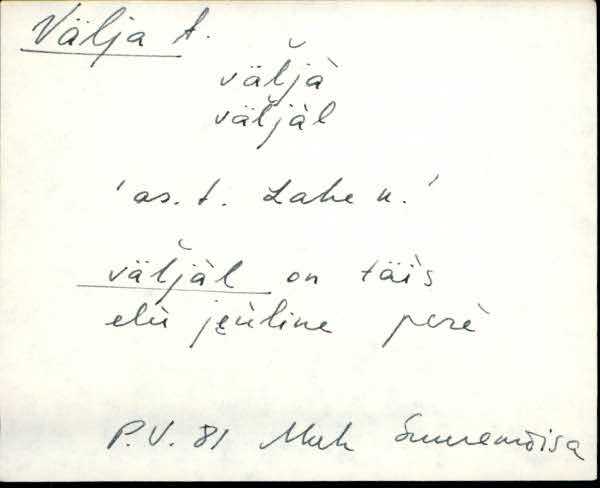 Välja t.
väl̆jà
väl̆jàl
'as. t. Lahe k.'
väl̆jàl on täìs
elu jeùline perè
P.V. 81 Muh Suuremõisa